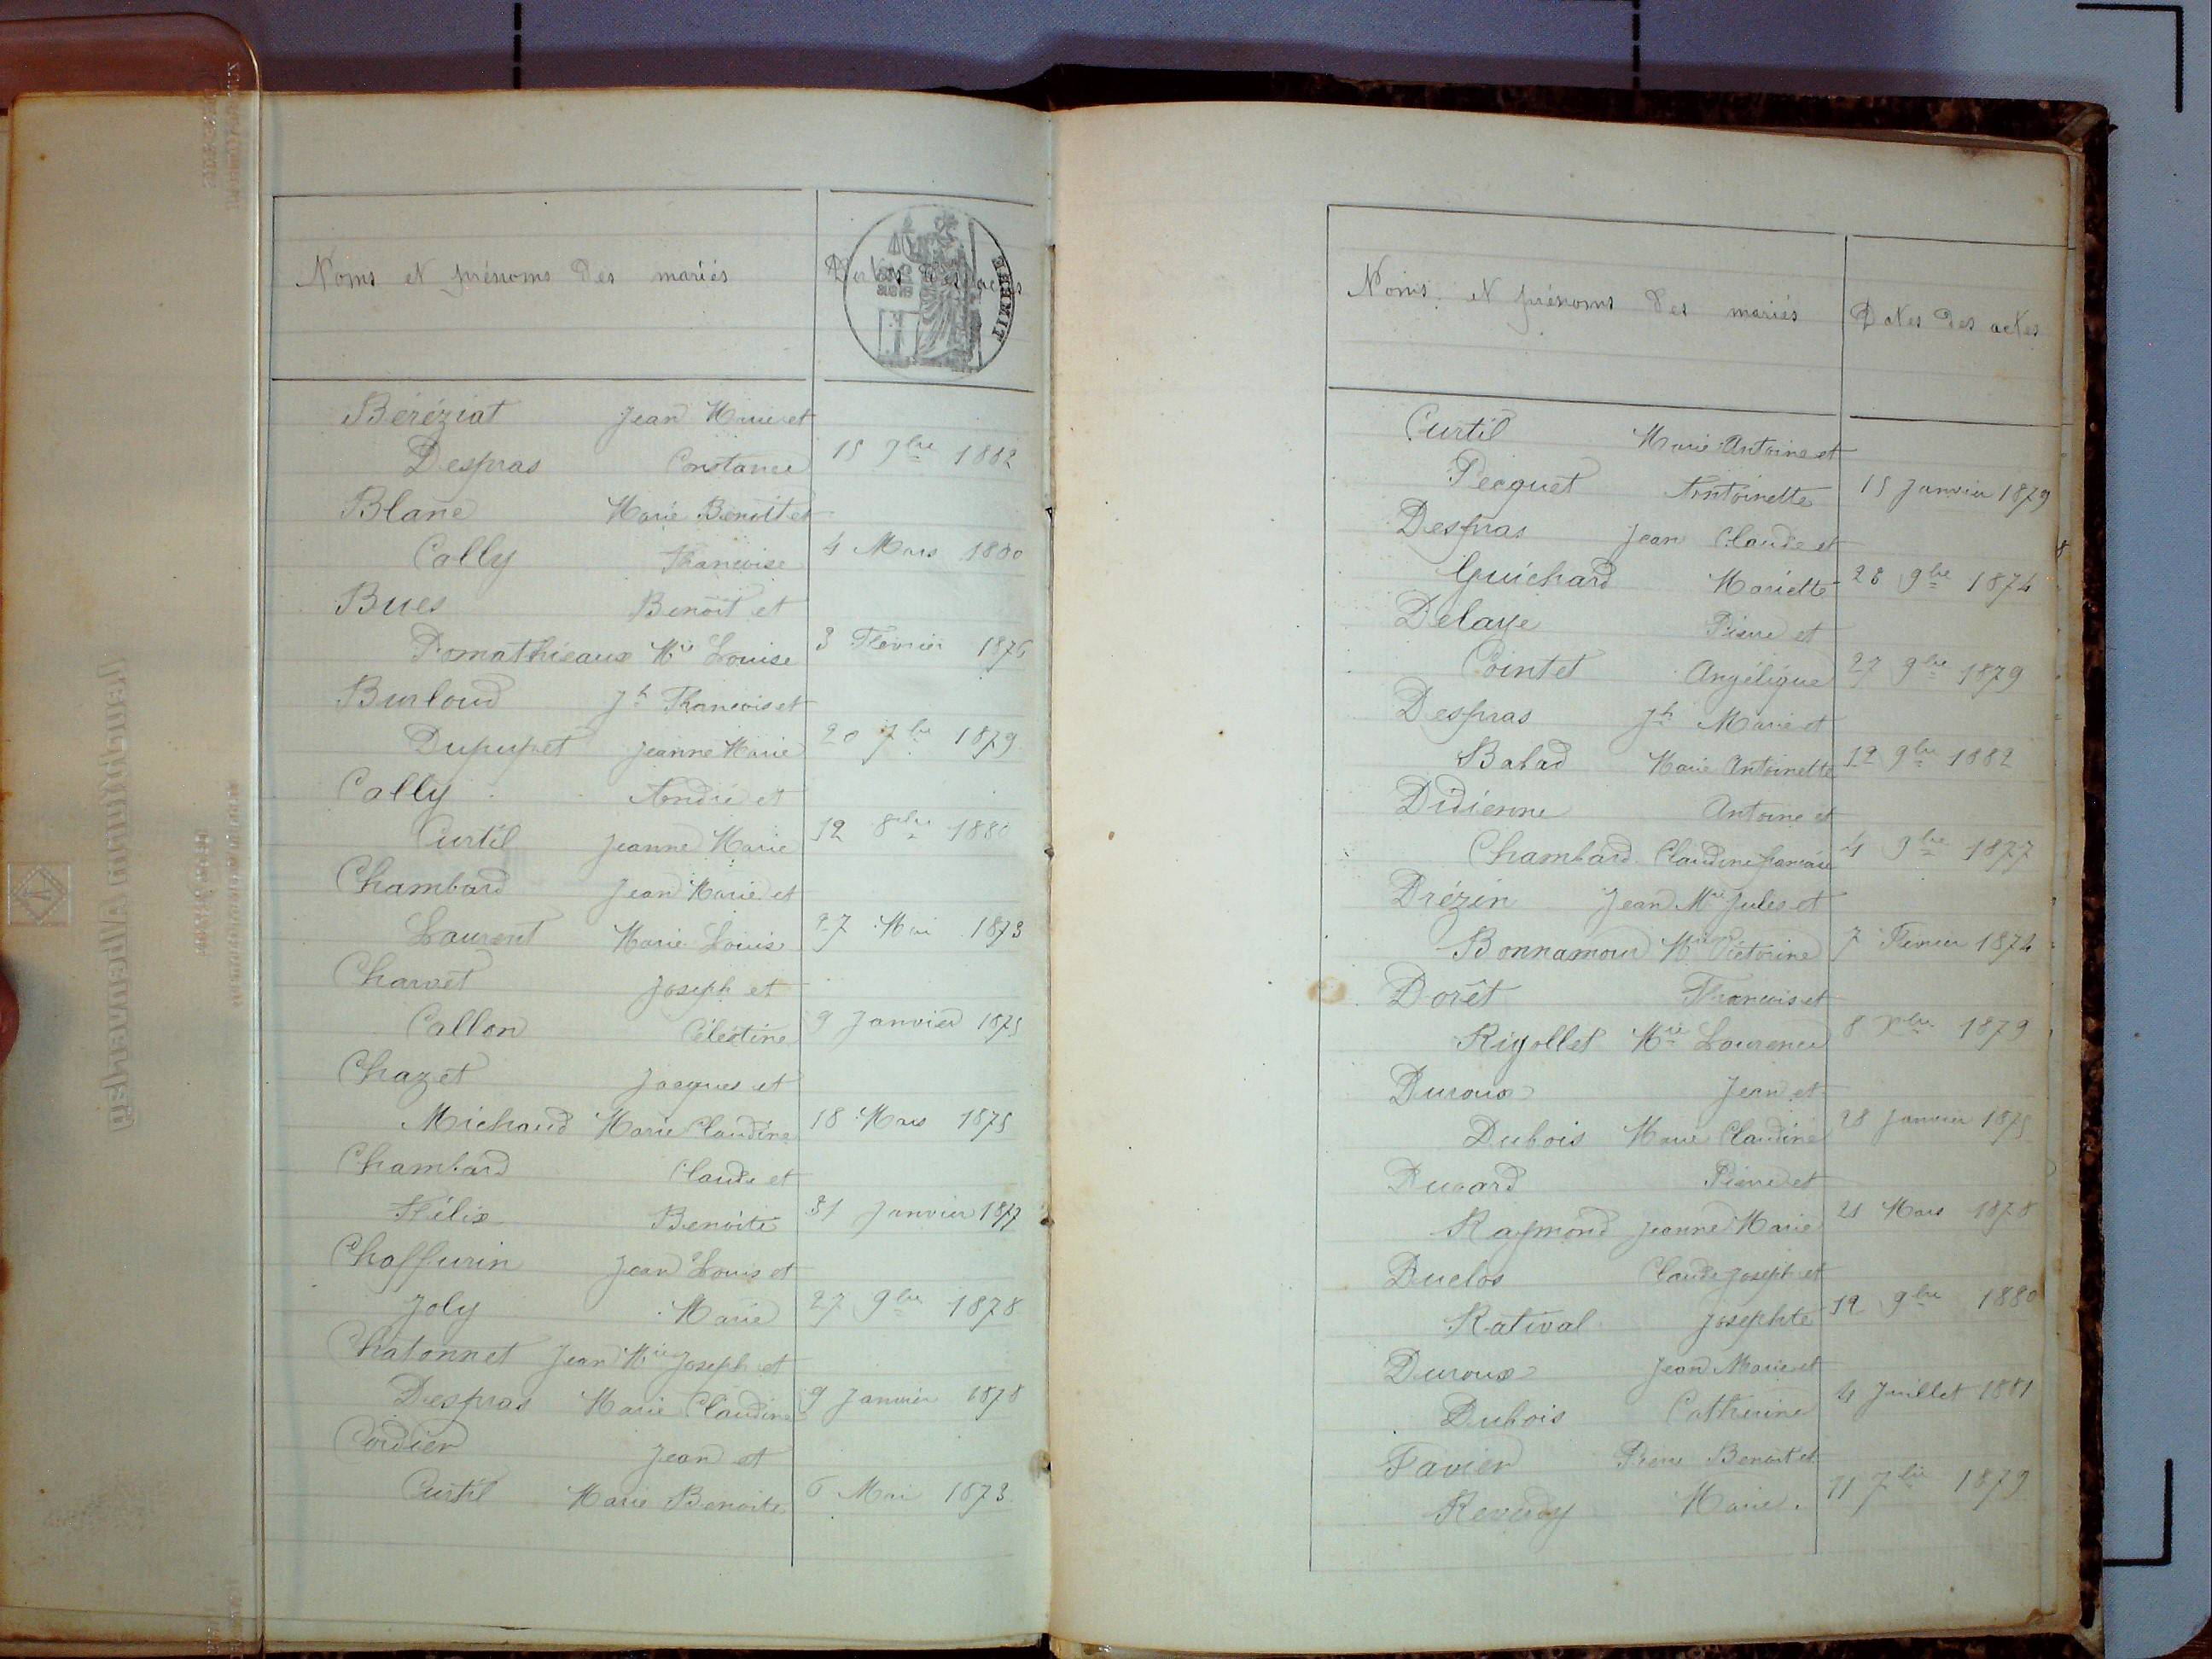 Noms et prénoms des mariés
Dates des actes
TIMBRE
Béréziat Jean Marie et
Despras Constance 15 9bre 1882
Blanc Marie Benoit et
Cally Francoise 4 Mars 1880
Bues Benoit et
Pomathieaux Mie Louise 3 Fevrier 1876
Burloud Jh Francois et
Dupupet Jeanne Marie 20 7bre 1879
Cally André et
Curtil Jeanne Marie 12 8bre 1880
Chambard Jean Marie et
Laurent Marie Louise 27 Mai 1873
Charvet Joseph et
Callon Céléstine 9 Janvier 1875
Chazet Jacques et
Michaud Marie Claudine 18 Mars 1875
Chambard Claude et
Félix Benoite 31 Janvier 1877
Chaffurin Jean Louis et
Joly Marie 27 9bre 1878
Chatonnet Jean Mie Joseph et
Despras Marie Claudine 9 Janvier 1878
Cordier Jean et
Curtil Marie Benoite 6 Mai 1873
Noms et prénoms des mariés
Dates des actes
Curtil Marie Antoine et
Pecquet Antoinette 15 Janvier 1879
Despras Jean Claude et
Guichard Mariette 28 9bre 1874
Delaye Pierre et
Cointet Angélique 27 9bre 1879
Despras Jh Marie et
Balad Marie Antoinette 12 9bre 1882
Didienne Antoine et
Chambard Claudine francoise 4 9bre 1877
Drézin Jean Mie Jules et
Bonnamour Victorine 7 Fevrier 1874
Dorêt Francois et
Rigollet Mie Laurence 8 Xbre 1879
Duroux Jean et
Dubois Marie Claudine 28 Janvier 1875
Ducard Pierre et
Raymond Jeanne Marie 21 Mars 1878
Duclos Claude Joseph et
Rativat Josephte 12 9bre 1880
Duroux Jean Marie et
Dubois Catherine 4 Juillet 1881
Favier Pierre Benoit et
Reverdy Marie. 11 7bre 1879